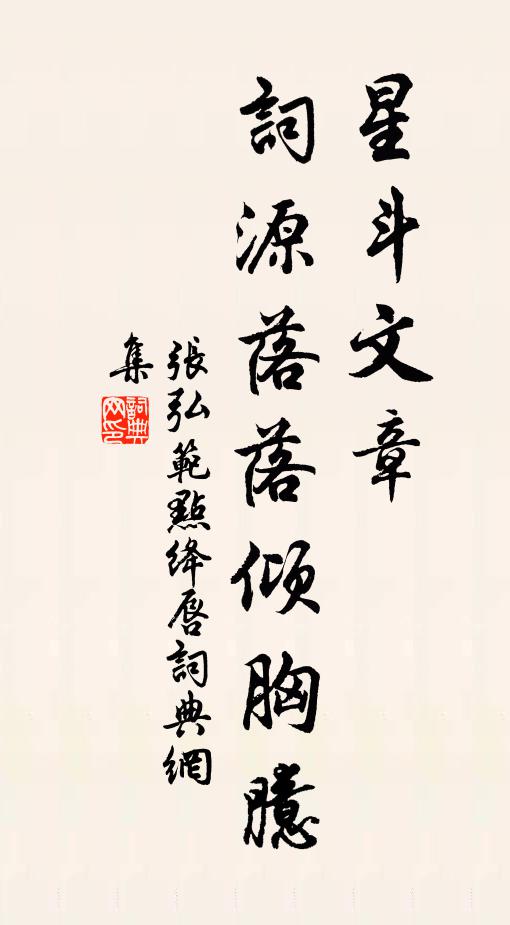 星斗文章
詞源落落傾胸臆
張弘範點绛唇詞典網
集
詞典
网印